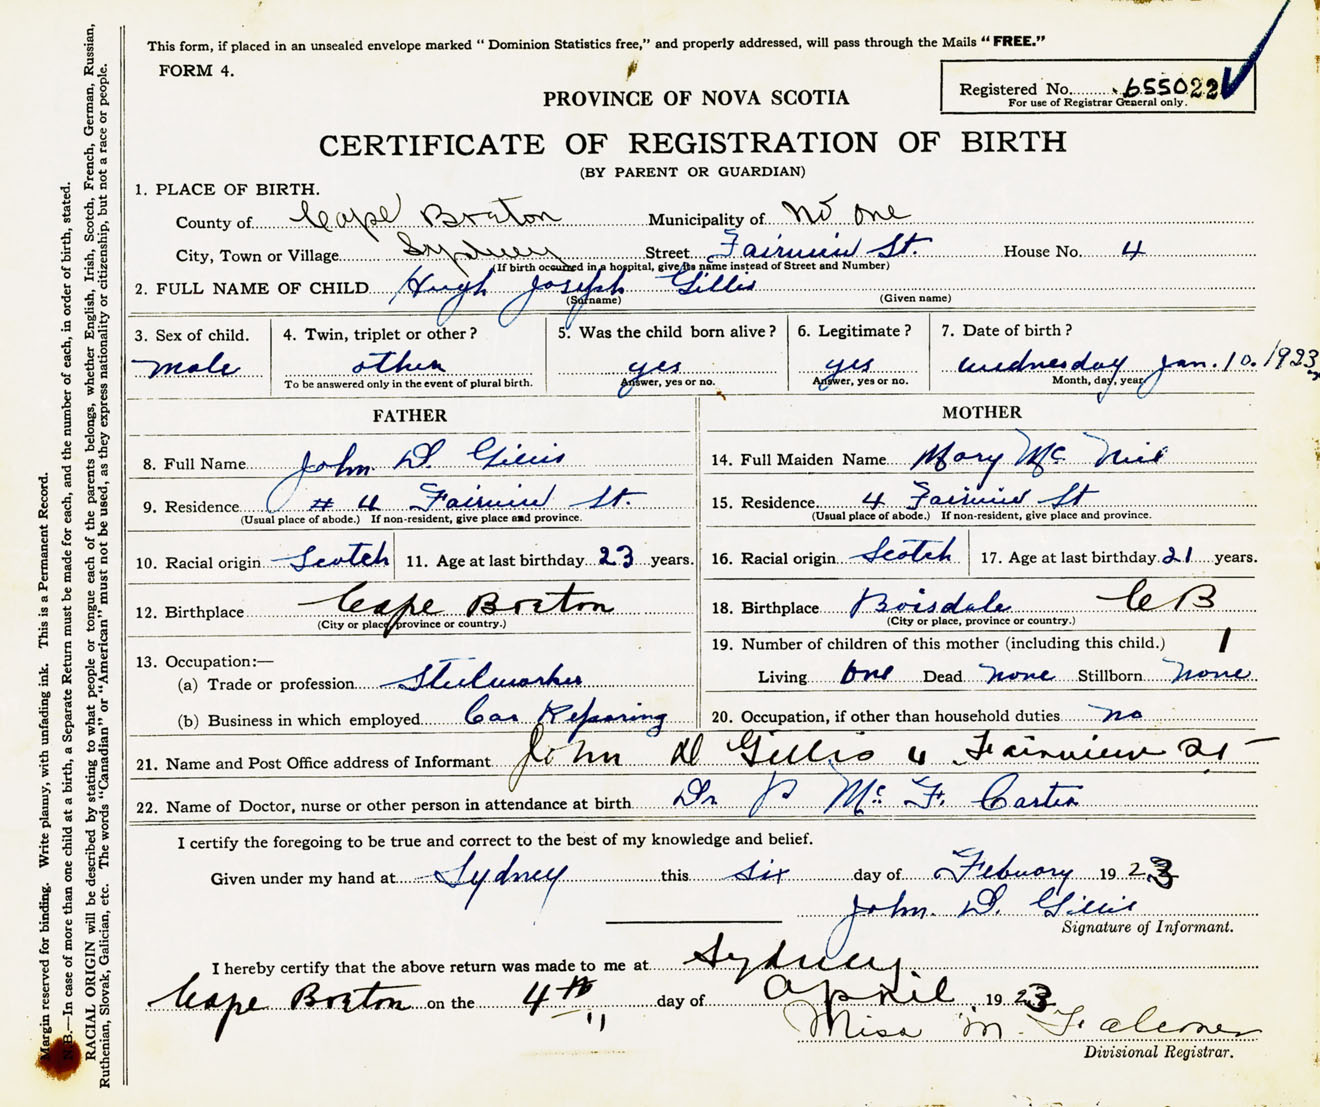 This form, if placed in an unsealed envelope marked "Dominion Statistics free," and properly addressed, will pass through the Mails "FREE."
FORM 4.
Registered No. 655022
For use of Registrar General only.
PROVINCE OF NOVA SCOTIA
CERTIFICATE OF REGISTRATION OF BIRTH
(BY PARENT OR GUARDIAN)
1. PLACE OF BIRTH.
County of Cape Breton Municipality of No one
City, Town or Village Sydney Street Fairview St. House No. 4
(If birth occurred in a hospital, give its name instead of Street and Number)
2. FULL NAME OF CHILD Hugh Joseph Gillis
(Surname) (Given name)
3. Sex of child. 4. Twin, triplet or other? 5. Was the child born alive? 6. Legitimate? 7. Date of birth?
male other yes yes wednesday Jan. 10. 1923
To be answered only in the event of plural birth. Answer, yes or no. Answer, yes or no. Month, day, year
FATHER MOTHER
8. Full Name John D. Gillis 14. Full Maiden Name Mary Mc Neil
9. Residence # 4 Fairview St. 15. Residence 4 Fairview St
(Usual place of abode.) If non-resident, give place and province. (Usual place of abode.) If non-resident, give place and province.
10. Racial origin Scotch 11. Age at last birthday 23 years. 16. Racial origin Scotch 17. Age at last birthday 21 years.
12. Birthplace Cape Breton 18. Birthplace Boisdale C B
(City or place, province or country.) (City or place, province or country.)
19. Number of children of this mother (including this child.) 1
13. Occupation:—
(a) Trade or profession Steelworker Living one Dead none Stillborn none
(b) Business in which employed Car Reparing 20. Occupation, if other than household duties no
21. Name and Post Office address of Informant John D Gillis 4 Fairview St
22. Name of Doctor, nurse or other person in attendance at birth Dr P Mc F. Carter
I certify the foregoing to be true and correct to the best of my knowledge and belief.
Given under my hand at Sydney this six day of Febuary 1923
John. D. Gillis
Signature of Informant.
I hereby certify that the above return was made to me at Sydney
Cape Breton on the 4th day of april 1923
Miss M. Falconer
Divisional Registrar.
Margin reserved for binding. Write plainly, with unfading ink. This is a Permanent Record.
N.B.—In case of more than one child at a birth, a Separate Return must be made for each, and the number of each, in order of birth, stated.
RACIAL ORIGIN will be described by stating to what people or tongue each of the parents belongs, whether English, Irish, Scotch, French, German, Russian,
Ruthenian, Slovak, Galician, etc. The words "Canadian" or "American" must not be used, as they express nationality or citizenship, but not a race or people.